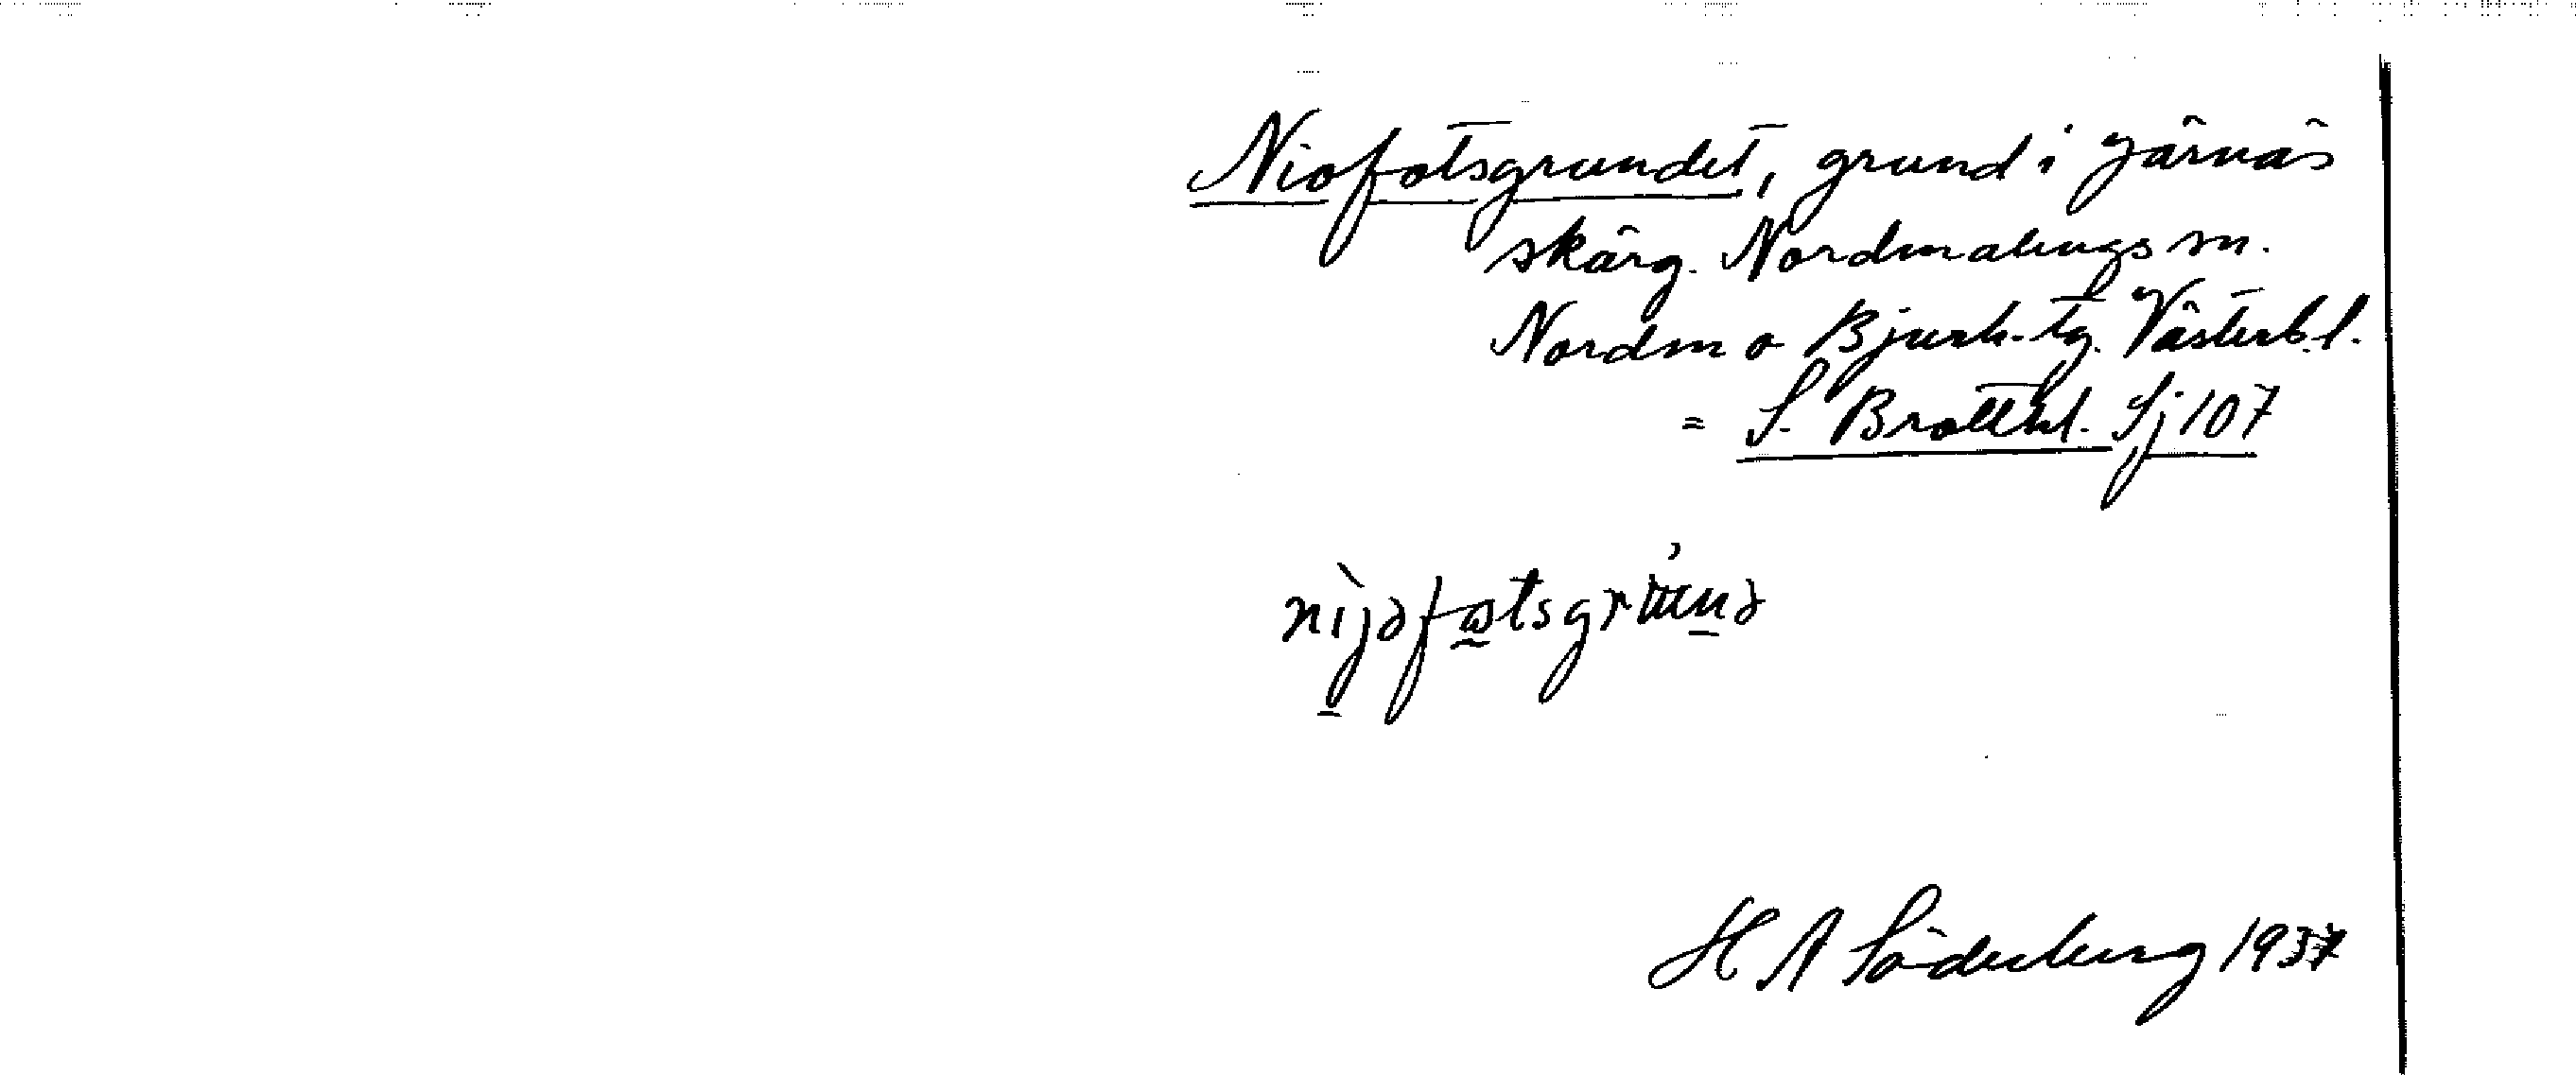 Niofotsgrundet, grund i Järnäs
skärg. Nordmalings sn.
Nordm o Bjurh. tg. Västerb. l.
= S. Brottkl. Sj 107
H A Söderberg 1937